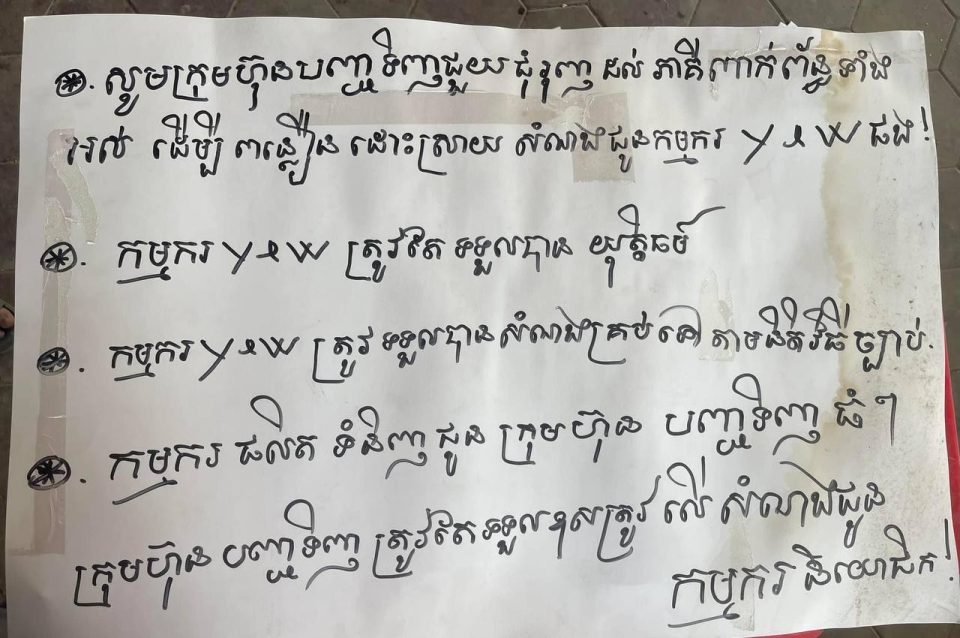 ⊛. សូមក្រុមហ៊ុនបញ្ជាទិញជួយជំរុញ ដល់ ភាគីពាក់ព័ន្ធទាំង
អស់ ដើម្បី ពន្លឿន ដោះស្រាយ សំណងជូនកម្មករ Y & W ផង!
⊛. កម្មករ Y & W ត្រូវតែ ទទួលបាន យុត្តិធម៌
⊛. កម្មករ Y & W ត្រូវ ទទួលបានសំណងគ្រប់ទៅ តាមនិតិវិធីច្បាប់.
⊛. កម្មករ ផលិត ទំនិញ ជូន ក្រុមហ៊ុន បញ្ជាទិញ ធំៗ
ក្រុមហ៊ុន បញ្ជាទិញ ត្រូវតែទទួលខុសត្រូវ លើ សំណងជូន
កម្មករ និយោជិត!